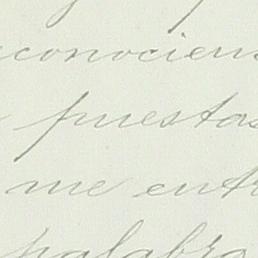 conocien
puestas
me entr
palabra